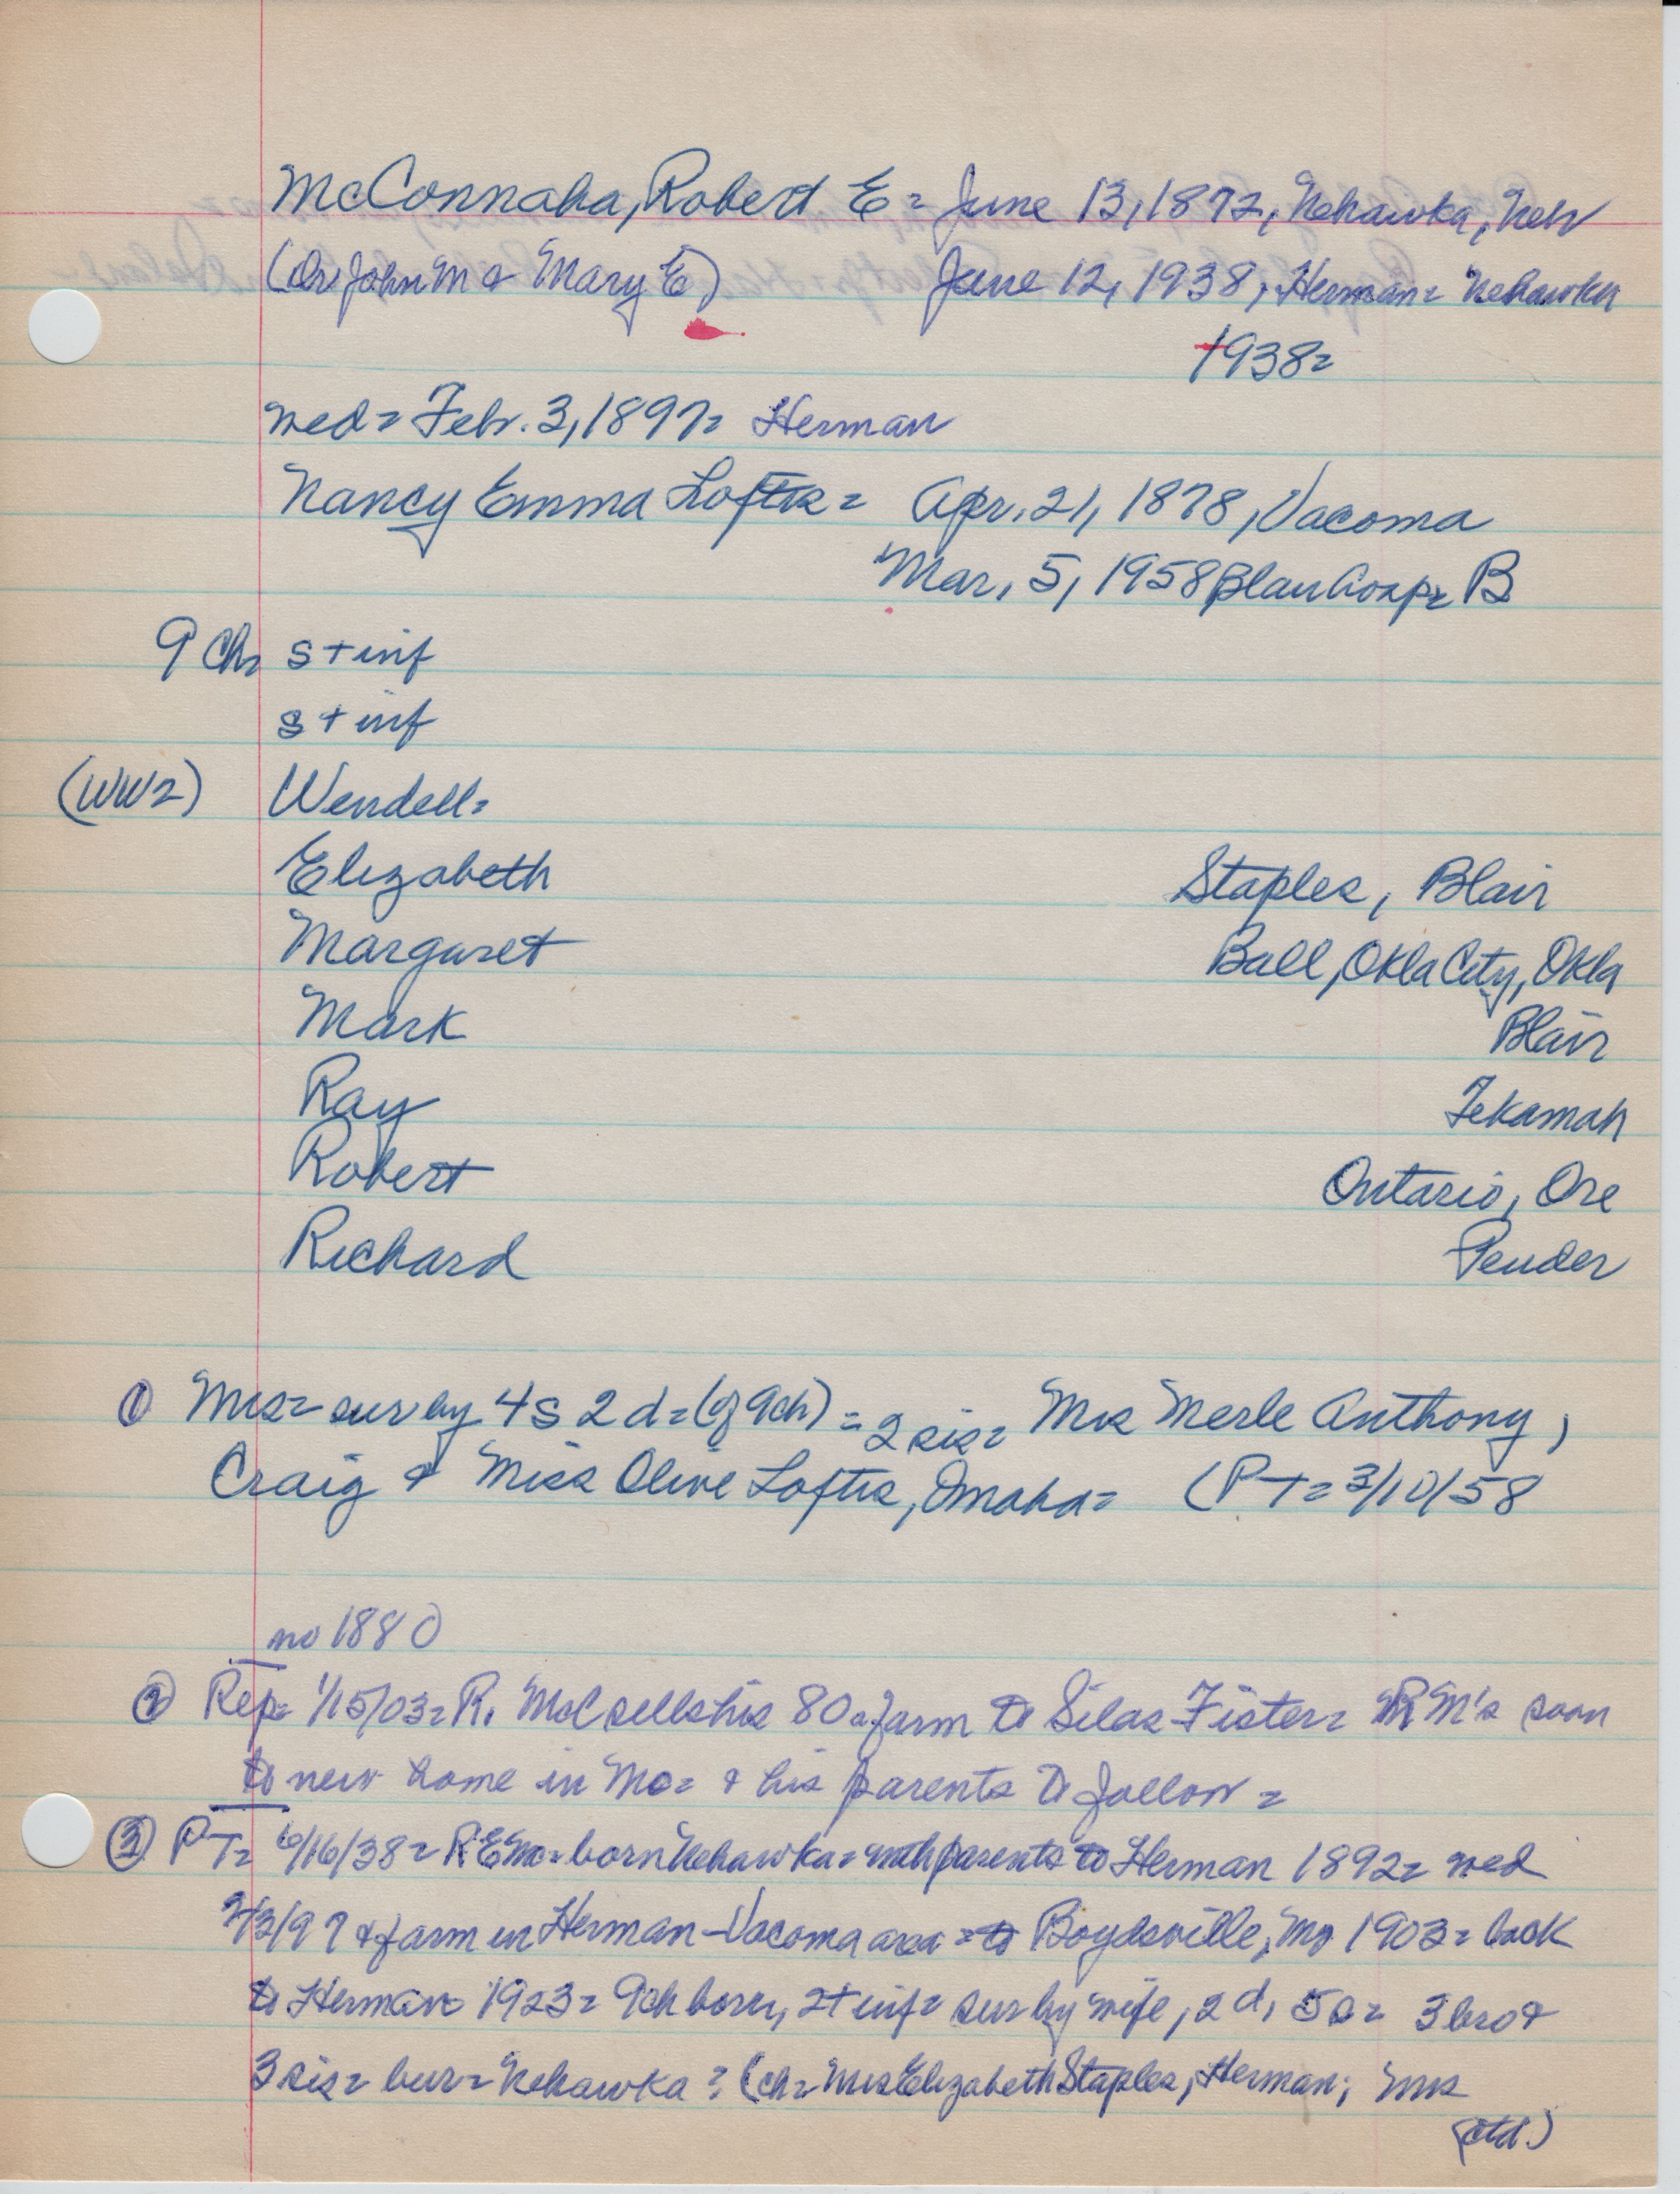 McConnaha, Robert E = June 13, 1872, Nehawka, Neb
(Dr John M & Mary E) June 12, 1938, Herman = Nehawka
1938=
wed = Febr. 3, 1897= Herman
Nancy Emma Loftis = Apr. 21, 1878, Vacoma
Mar, 5, 1958 B
9 Ch= s + inf
s + inf
(WW2) Wendell=
Elizabeth Staples, Blair
Margaret Ball, Okla City, Okla
Mark Blair
Ray Tekamah
Robert Ontario, Ore
Richard Pender
① Mrs= sur by 4 s 2 d = (of 9ch) = 2 sis= Mrs Merle Anthony,
Craig & Miss Olive Loftis, Omaha= (PT= 3/10/58
no 1880
② Rep= 1/15/03= R. McC sells his 80 a farm to Silas Fister= RM's soon
to new home in Mo= & his parents to follow=
③ PT= 6/16/38= R E Mc= born Nehawka= with parents to Herman 1892= wed
2/3/97 & farm in Herman-Vacoma area = to Boydsville, Mo 1903= back
to Herman 1923= 9ch born, 2 + inf= sur by wife, 2 d, 5 s= 3 bro &
3 sis= bur= Nehawka = (ch= Mrs Elizabeth Staples, Herman; Mrs
(ctd.)